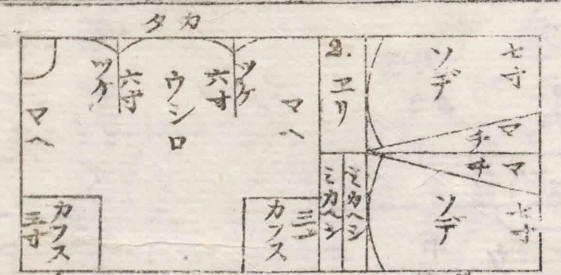 タカ
ツケ
六寸
ウシロ
六寸
ツケ
マヘ
マヘ
カフス
三寸
カフス
三寸
2.
ヱリ
ミカヘシ
ミカヘシ
ソデ
七寸
マチ
マチ
ソデ
七寸